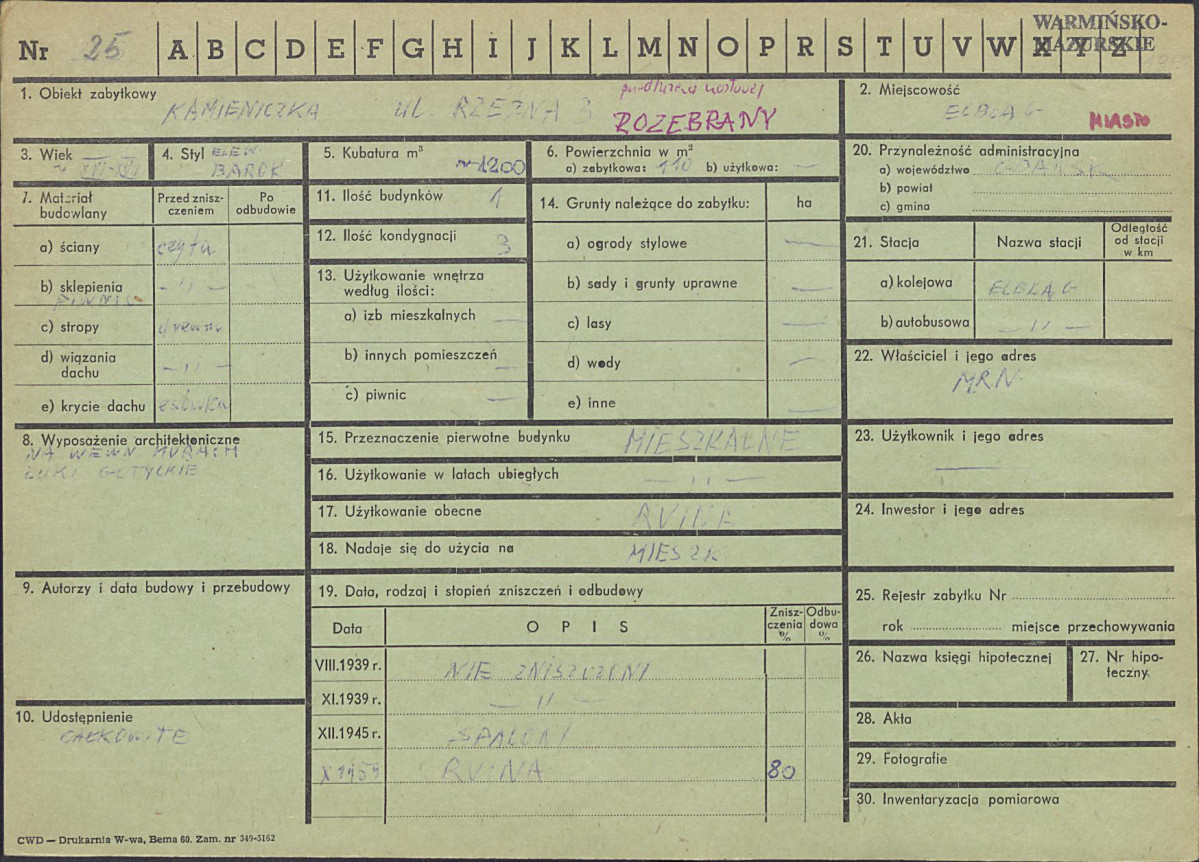 Nr 25 A B C D E F G H I J K L M N O P R S T U V W X Y Z
WARMIŃSKO-
MAZURSKIE
1. Obiekt zabytkowy
KAMIENICZKA ul. RZEŹNA 3
ROZEBRANY
2. Miejscowość
ELBLĄG MIASTO
3. Wiek
4. Styl ELEW.
BAROK
5. Kubatura m³
~1200
6. Powierzchnia w m²
a) zabytkowa: 110 b) użytkowa: —
7. Materiał budowlany
Przed znisz-
czeniem
Po
odbudowie
a) ściany cegła
b) sklepienia — " —
PIWNIC
c) stropy drewn
d) wiązania
dachu — " —
e) krycie dachu esówka
8. Wyposażenie architektoniczne
NA WEWN MURACH
ŁUKI GOTYCKIE
9. Autorzy i data budowy i przebudowy
10. Udostępnienie
CAŁKOWITE
11. Ilość budynków 1
12. Ilość kondygnacji 3
13. Użytkowanie wnętrza
według ilości:
a) izb mieszkalnych —
b) innych pomieszczeń —
c) piwnic —
14. Grunty należące do zabytku: ha
a) ogrody stylowe —
b) sady i grunty uprawne —
c) lasy —
d) wody —
e) inne —
15. Przeznaczenie pierwotne budynku MIESZKALNE
16. Użytkowanie w latach ubiegłych — " —
17. Użytkowanie obecne RUINA
18. Nadaje się do użycia na MIESZK
19. Data, rodzaj i stopień zniszczeń i odbudowy
Data OPIS
Znisz-
czenia
%
Odbu-
dowa
%
VIII.1939 r. NIE ZNISZCZONY
XI.1939 r. — " —
XII.1945 r. SPALONY
X 1959 RUINA 80
20. Przynależność administracyjna
a) województwo GDAŃSK
b) powiat
c) gmina
21. Stacja Nazwa stacji
Odległość
od stacji
w km
a) kolejowa ELBLĄG
b) autobusowa — " —
22. Właściciel i jego adres
MRN
23. Użytkownik i jego adres
—
24. Inwestor i jego adres
25. Rejestr zabytku Nr
rok miejsce przechowywania
26. Nazwa księgi hipotecznej
27. Nr hipo-
teczny
28. Akta
29. Fotografie
30. Inwentaryzacja pomiarowa
CWD — Drukarnia W-wa, Bema 60. Zam. nr 349-5162